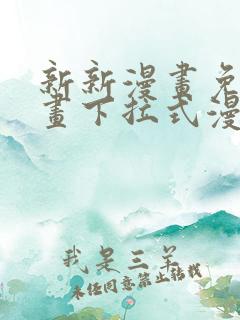 新新漫畫免
畫下拉式漫
我是三羊
未经同意禁止转载